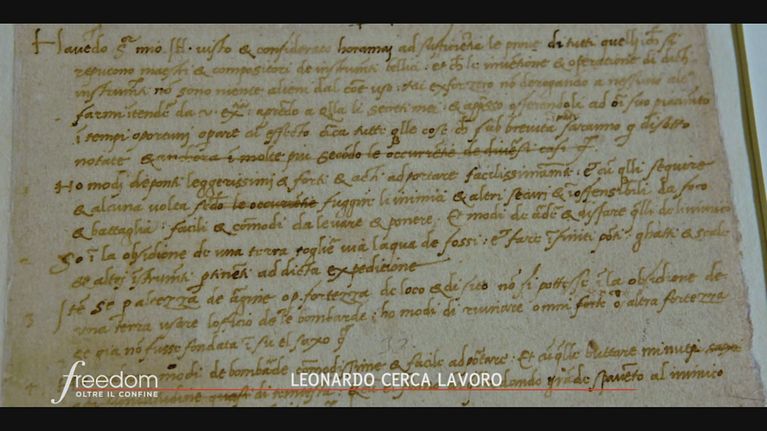 Havedo S.or mio Ill. visto & considerato horamai ad sufficientia le prove di tutti quelli che si
reputono maestri & compositori de instrumenti bellici: et che le inventione & operatione di dicti
instrumenti no sono niente alieni dal coe uso: mi exforzero no derogando a nessuno altro
farmi intender da v. ex.a: aprendo a qlla li secreti mei: & appsso offerendoli ad oi suo piacimto
i tempi oportuni operare cu effecto circa tutte qlle cose che sub brevita saranno q disotto
notate & anchora i molte piu secodo le occurrentie de diversi casi
Ho modi de ponti leggerissimi & forti & acti ad portare facilissimamte: et cu qlli seguire
& alcuna volta secodo le occurrentie fuggire li inimici & altri securi & inoffensibili da foco
& battaglia: facili & comodi da levare & ponere. Et modi de arder & disfare qlli de linimico
So i la obsidione de una terra toglier via laqua de fossi: et fare ifiniti poti ghatti & scale
& altri istrumti ptineti ad dicta expeditione
3 Ite se p altezza de argine o p fortezza de loco & di sito no si pottesse i la obsidione de
una terra usare lofficio de le bombarde: ho modi di ruinare omni forte o altra fortezza
se gia no fusse fondata i su el saxo
modi de bombarde comodissime & facile ad portare: Et cu qlle buttare minuti
di tempesta: grade spaveto al inimico
freedom
OLTRE IL CONFINE
LEONARDO CERCA LAVORO